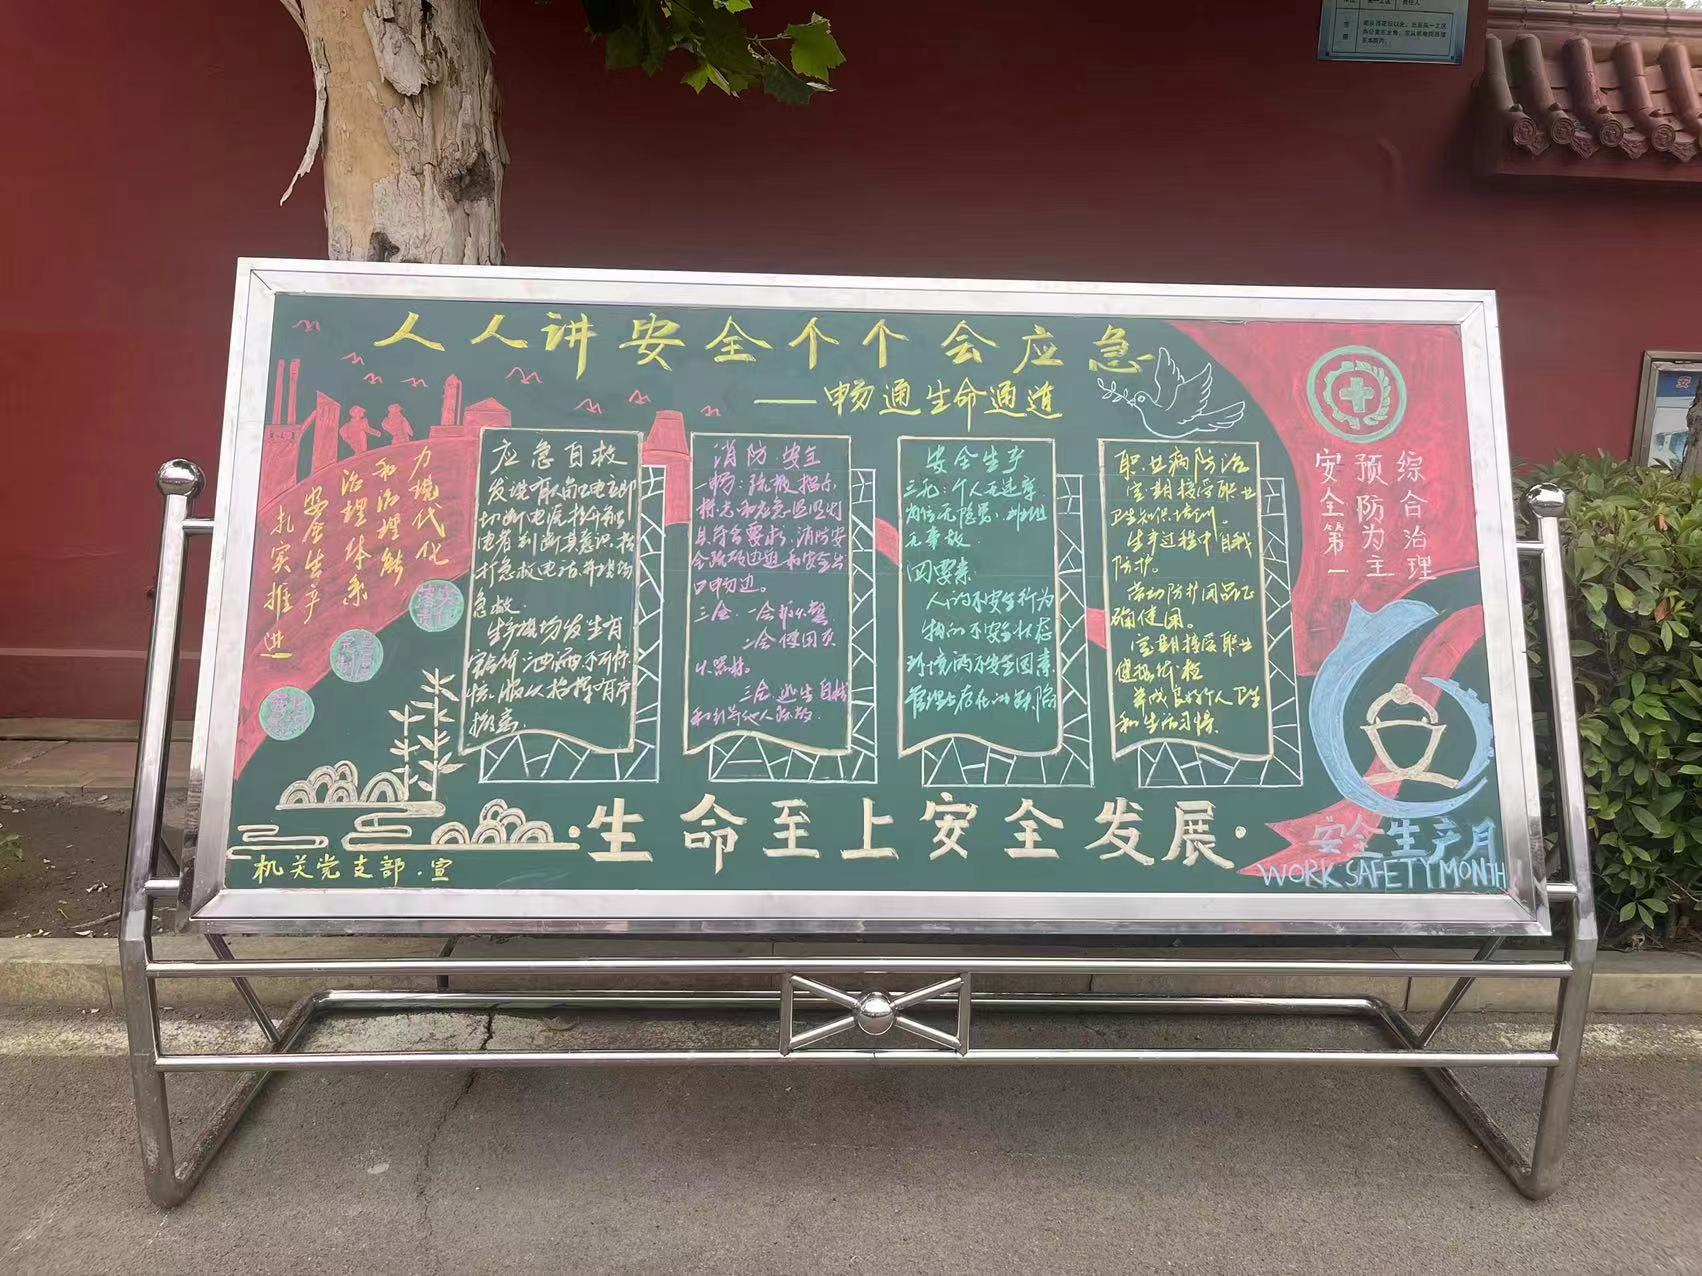 人人讲安全个个会应急
——畅通生命通道
扎实推进
安全生产
治理体系
和治理能
力现代化
应急自救
发现有人触电立即
切断电源,拨开触
电者判断其意识,拨
打急救电话,并现场
急救.
生产现场发生有
害气体泄漏,不可惊
慌,服从指挥有序
撤离.
消防安全
一畅:疏散指示
标志和应急照明灯
具符合要求,消防安
全疏散通道和安全出
口畅通.
三会:一会报火警
二会使用灭
火器材.
三会逃生自救
和引导他人疏散.
安全生产
三无:个人无违章
岗位无隐患,班组
无事故.
四要素
人的不安全行为
物的不安全状态
环境的不安全因素
管理上存在的缺陷
职业病防治
定期接受职业
卫生知识培训.
生产过程中自我
防护.
劳动防护用品正
确使用。
定期接受职业
健康体检
养成良好个人卫生
和生活习惯.
安全第一
预防为主
综合治理
·生命至上安全发展·
机关党支部.宣
安全生产月
WORK SAFETY MONTH